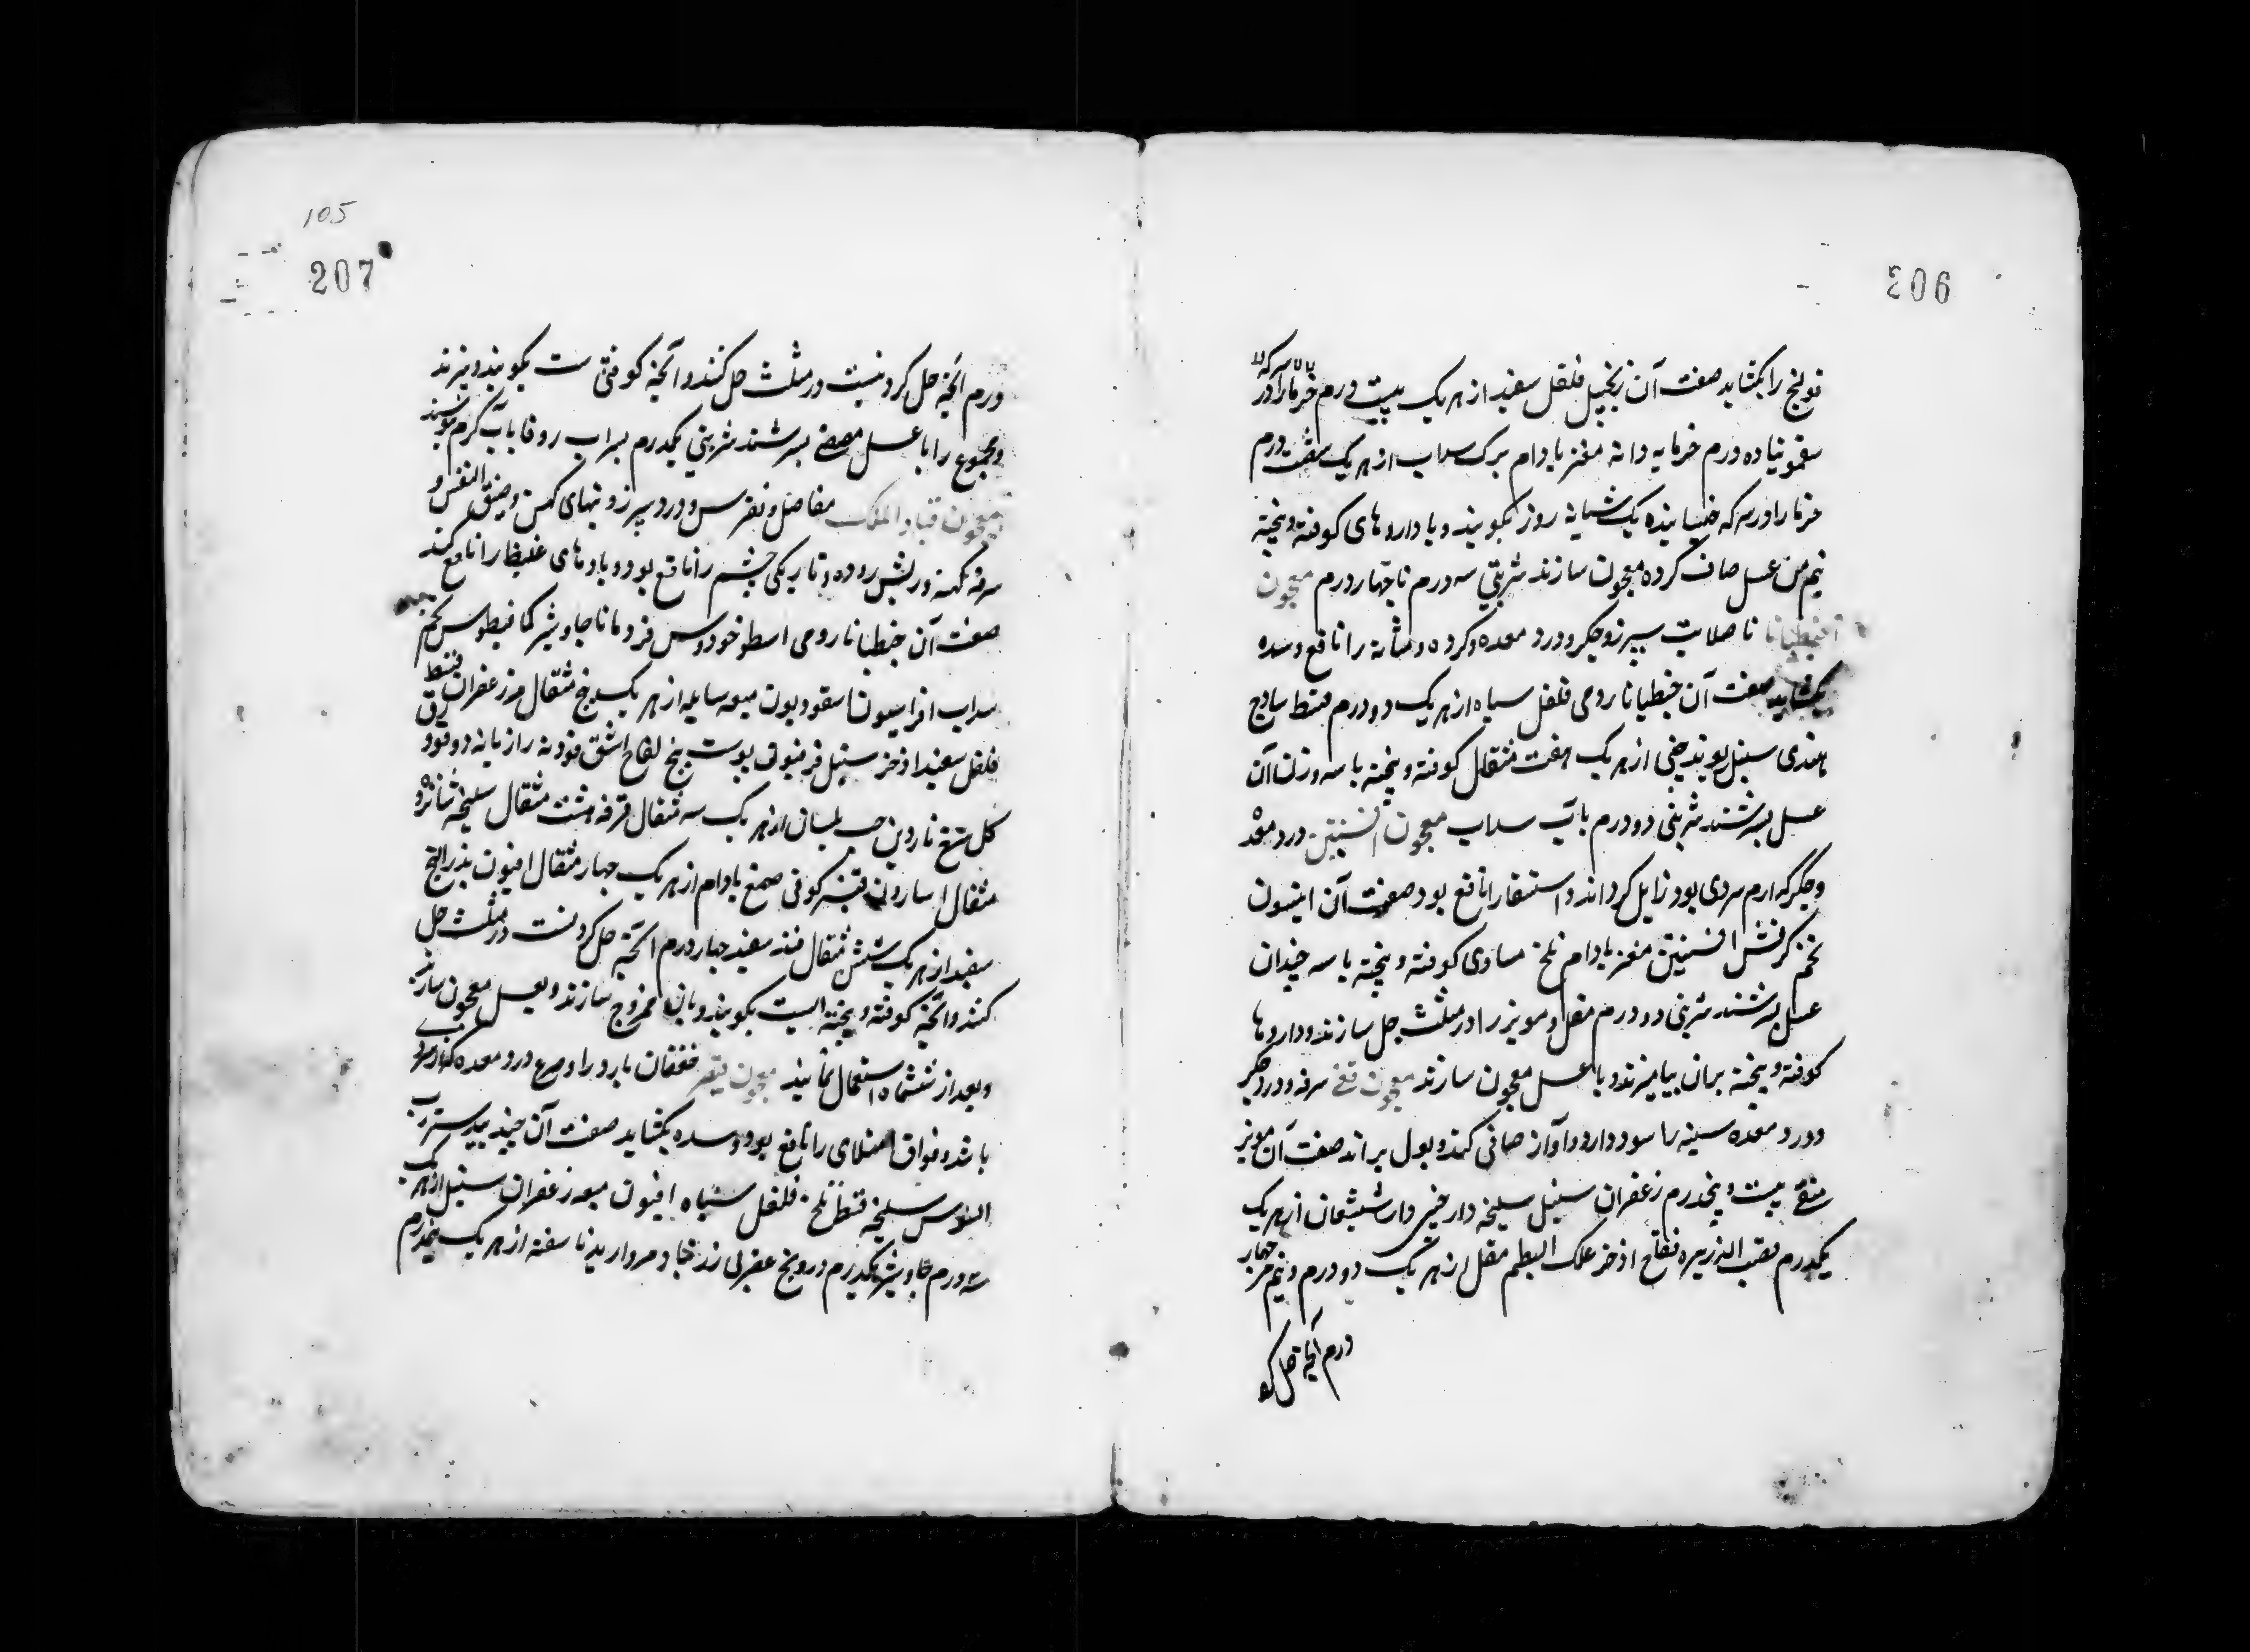 206
قولنج را بکشاید صفت آن زنجبیل فلفل سفید از هر یک بیست درم خرما را در سرکه
سقمونیا ده درم خرما به دانه مغز بادام برک سداب از هر یک هفت درم
خرما را در سرکه خیسانیده یک شبانه روز بکوبند و با داروهای کوفته و بیخته
نیم من عسل صاف کرده معجون سازند شربتی سه درم تا چهار درم معجون
صلابت سپرز و جکر و درد معده و کرده و مثانه را نافع و سده
بکشاید صفت آن جنطیانا رومی فلفل سیاه از هر یک دو درم قسط ساذج
هندی سنبل ریوند چینی از هر یک هفت مثقال کوفته و بیخته با سه وزن آن
عسل بسرشند شربتی دو درم باب سداب معجون افسنتین درد معده
و جکر که ارم سردی بود زایل کرداند و استسقا را نافع بود صفت آن انیسون
تخم کرفش افسنتین مغز بادام تلخ مساوی کوفته و بیخته با سه چندان
عسل بسرشند شربتی دو درم مقل و مویز را در مثلث حل سازند و داروها
کوفته و بیخته بران بیامیزند و با عسل معجون سازند معجون سرفه و درد جکر
و درد معده سینه را سود دارد و آواز صافی کند و بول براند صفت آن مویز
منقی بیست و پنج درم زعفران سنبل سلیخه دارچینی دارشیشعان از هر یک
یکدرم قصب الذریره فقاح اذخر علک البطم مقل از هر یک دو درم و نیم مر چهار
درم آنچه حل کر
105
207
درم آنچه حل کردنیست در مثلث حل کنند و آنچه کوفتنی ست بکوبند و ببزند
و مجموع را با عسل مصفی بسرشند شربتی یکدرم بسراب روفا باب کرم بنوشند
معجون قباد الملک مفاصل و نقرس و درد سپرز و تبهای کهن و ضیق النفس و
سرفه کهنه و ریش روده و تاریکی چشم را نافع بود و بادهای غلیظ را نافع کند
صفت آن جنطیانا رومی اسطوخودوس فردمانا جاوشیر کمافیطوس تخم
سداب افراسیون اسقوردیون میعه سایله از هر یک پنج مثقال مر زعفران قسط
فلفل سفید اذخر سنبل فرفیون پوست بیخ لفاح اشق فودنه رازیانه دوقو
کل سرخ ناردین حب بلسان از هر یک سه مثقال قرفه هشت مثقال سلیخه شانزده
مثقال اسارون کوفی صمغ بادام از هر یک چهار مثقال افیون بذرالبنج
سفید از هر یک شش مثقال سفید چهار درم آنچه حل کردنست در مثلث حل
کنند و آنچه کوفته و بیخته است بکوبند و بان ممزوج سازند و بعسل معجون سازند
و بعد از ششماه استعمال نمایند معجون قیصر خفقان بارد را و صرع و درد معده که از سردی
باشد و فواق امتلای را نافع بود و سده بکشاید صفت آن جندبیدستر رب
السوس سلیخه قسط تلخ فلفل سیاه افیون میعه زعفران سنبل از هر یک
سه درم جاوشیر یکدرم درونج عقربی زرنباد مروارید ناسفته از هر یک نیمدرم